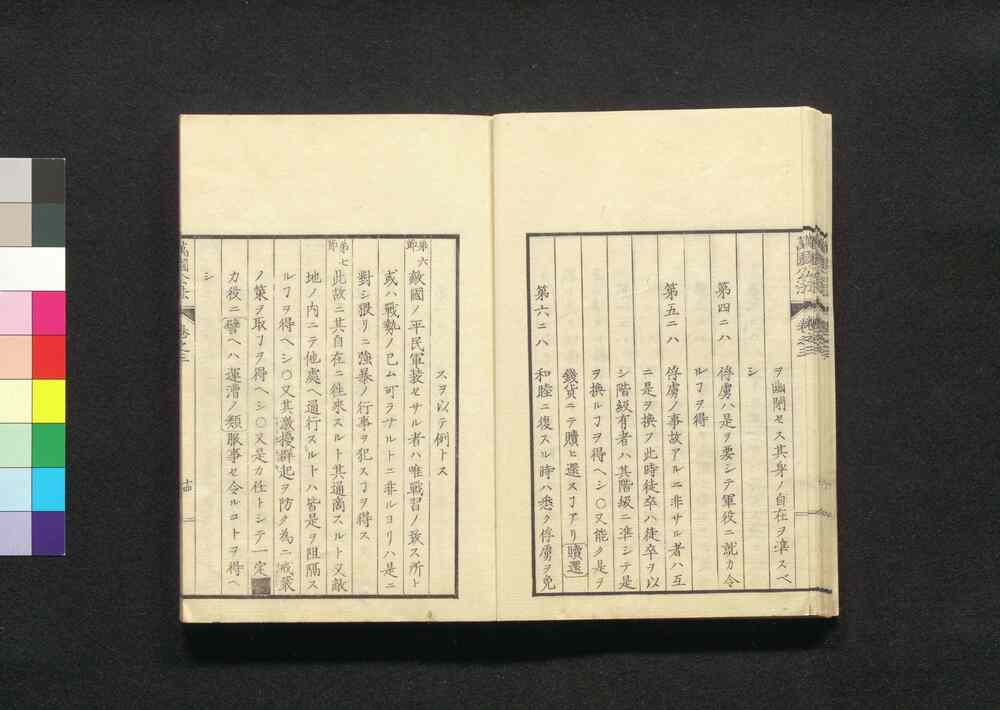 ヲ幽閉セス其身ノ自在ヲ準スベ
シ
第四ニハ 俘虜ハ是ヲ要シテ軍役ニ就カ令
ルヿヲ得
第五ニハ 俘虜ノ事故アルニ非サル者ハ互
ニ是ヲ換フ此時徒卒ハ徒卒ヲ以
シ階級有者ハ其階級ニ準シテ是
ヲ換ルヿヲ得ヘシ〇又能ク是ヲ
錢貨ニテ贖ヒ還スヿアリ贖還
第六ニハ 和睦ニ復スル時ハ悉ク俘虜ヲ免
スヲ以テ例トス
第六節 敵國ノ平民軍装セサル者ハ唯戦習ノ致ス所ト
或ハ戦勢ノ已ム可ラサルトニ非ルヨリハ是ニ
對シ猥リニ強暴ノ行事ヲ犯スヿヲ得ス
第七節 此故ニ其自在ニ往来スルト其通商スルト又敵
地ノ内ニテ他處ヘ通行スルトハ皆是ヲ阻隔ス
ルヿヲ得ヘシ〇又其激擾群起ヲ防ク為ニ戒嚴
ノ策ヲ取ヿヲ得ヘシ〇又是カ任トシテ一定
力役ニ譬ヘハ運漕ノ類服事セ令ルコトヲ得ヘ
シ
萬國公法 巻之三